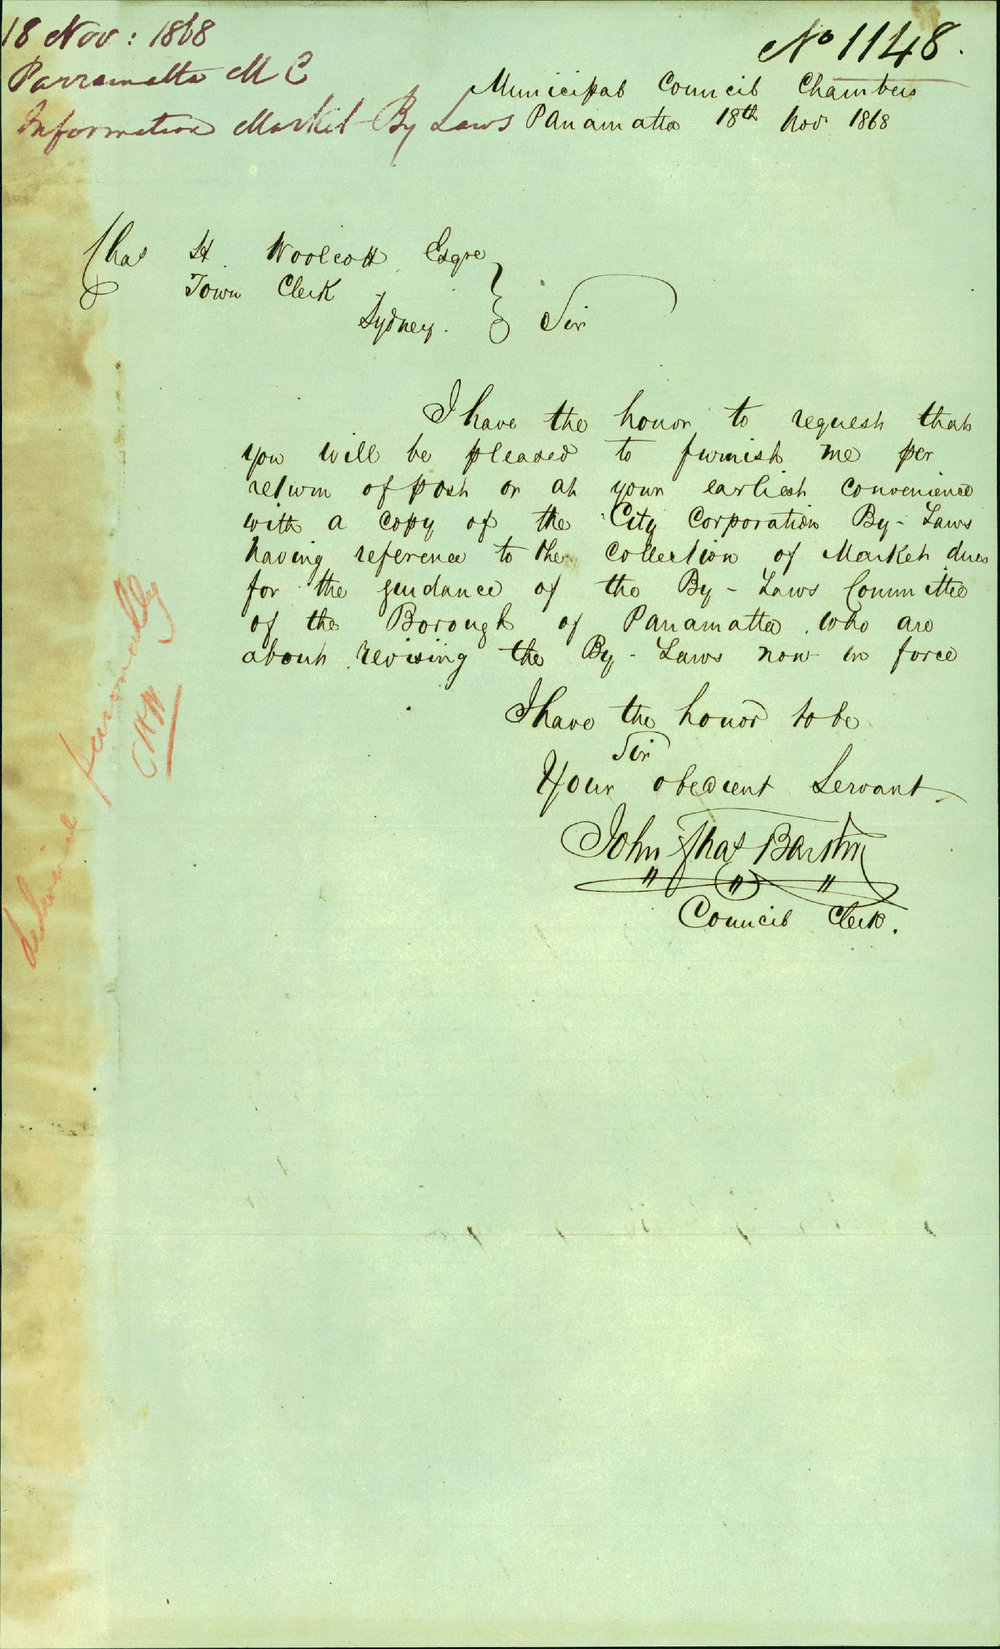 18 Nov: 1868
Parramatta M C
Information Market By Laws
No 1148.
Municipal Council Chambers
Parramatta 18th Nov 1868
Chas H. Woolcott Esqre
Town Clerk
Sydney.
Sir
I have the honor to request that
you will be pleased to furnish me per
return of post or at your earliest convenience
with a copy of the City Corporation By-Laws
having reference to the collection of Market dues
for the guidance of the By-Laws Committee
of the Borough of Parramatta who are
about revising the By-Laws now in force
I have the honor to be
Sir
Your obedient Servant
John Thas
Council Clerk.
delivered personally
CHW